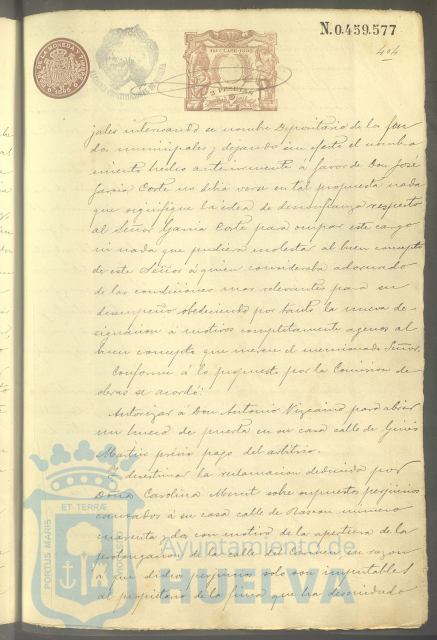 N.0.459.577
404
11ª CLASE
2 PESETAS
jales interesando se nombre Depositario de los fon
dos municipales y dejando sin efecto el nombra
miento hecho anteriormente á favor de Don José
García Corte no debía verse en tal propuesta nada
que signifique la idea de desconfianza respecto
al Señor García Corte para ocupar este cargo
ni nada que pudiera molestar al buen concepto
de este Señor á quien consideraba adornado
de las condiciones mas relevantes para su
desempeño obedeciendo por tanto la nueva de-
signacion á motivos completamente agenos al
buen concepto que merece el mencionado Señor.
Conforme á lo propuesto por la Comision de
obras se acordó:
Autorizar á Don Antonio Vizcaino para abrir
un hueco de puerta en su casa calle de Ginés
Martin previo pago del arbitrio.
Y desestimar la reclamacion deducida por
Doña Carolina sobre supuestos perjuicios
causados á su casa calle de Rascon numero
cuarenta y dos con motivo de la apertura de la
prolongacion de la calle en razon
á que dichos perjuicios solo son imputables
al propietario de la finca que ha descuidado
PORTUS MARIS
ET TERRÆ
Ayuntamiento de
HUELVA